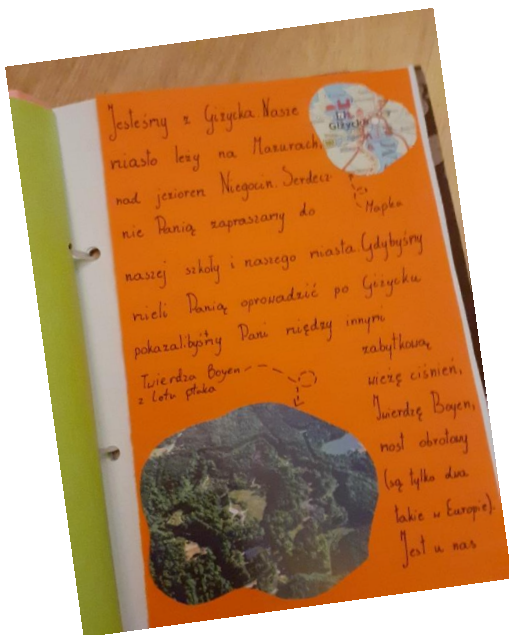 Jesteśmy z Giżycka. Nasze
miasto leży na Mazurach,
nad jeziorem Niegocin. Serdecz-
nie Panią zapraszamy do
naszej szkoły i naszego miasta. Gdybyśmy
mieli Panią oprowadzić po Giżycku
pokazalibyśmy Pani między innymi
zabytkową
wieżę ciśnień,
Twierdzę Boyen,
most obrotowy
(są tylko dwa
takie w Europie).
Jest u nas
Giżycko
Mapka
Twierdza Boyen
z lotu ptaka